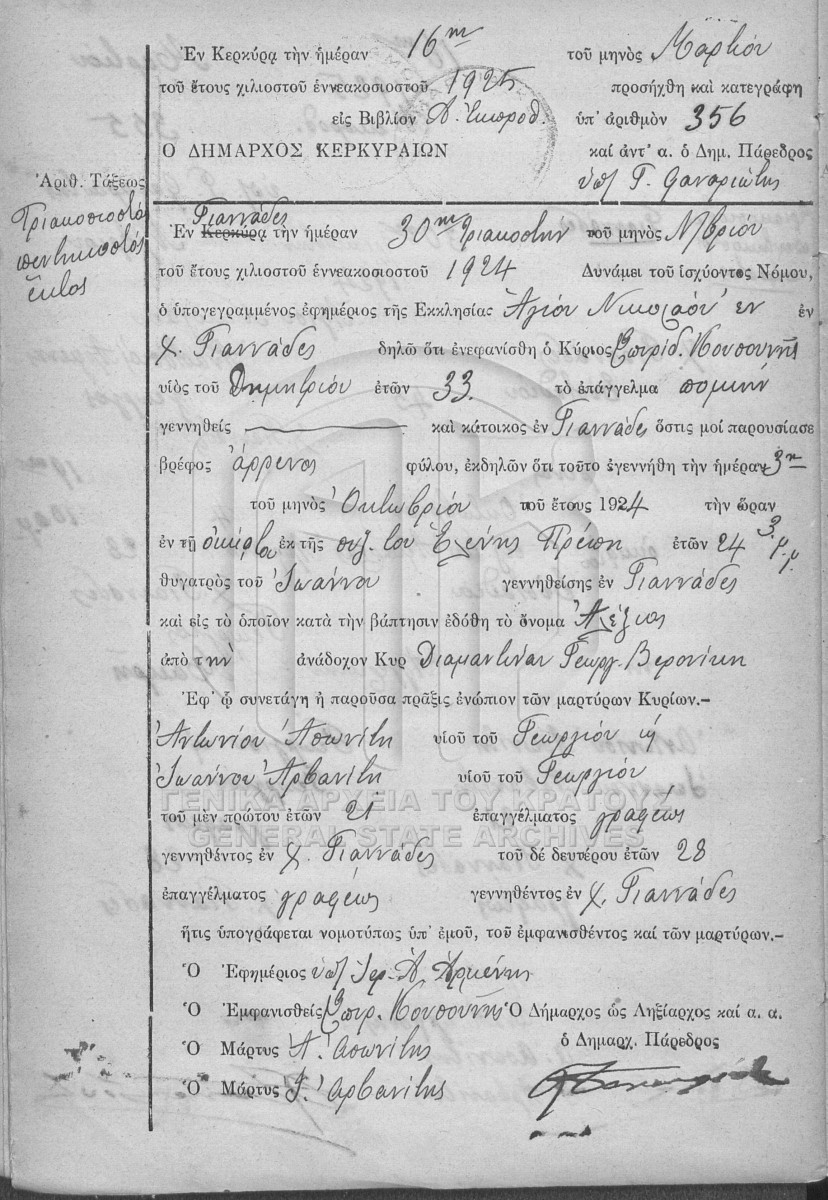 Ἐν Κερκύρᾳ τὴν ἡμέραν 16ην τοῦ μηνὸς Μαρτίου
τοῦ ἔτους χιλιοστοῦ ἐννεακοσιοστοῦ 1925 προσήχθη καὶ κατεγράφη
εἰς Βιβλίον Α. Ἐκπροθ. ὑπ' ἀριθμὸν 356
Ο ΔΗΜΑΡΧΟΣ ΚΕΡΚΥΡΑΙΩΝ καί ἀντ' α. ὁ Δημ. Πάρεδρος
Ἀριθ. Τάξεως
ὑπ/ Γ. Φαναριώτης
Τριακοσιοστὸς
πεντηκοστὸς
ἕκτος
Γιαννάδες
Ἐν Κερκύρᾳ τὴν ἡμέραν 30ην τριακοστὴν τοῦ μηνὸς Ν/βρίου
τοῦ ἔτους χιλιοστοῦ ἐννεακοσιοστοῦ 1924 Δυνάμει τοῦ ἰσχύοντος Νόμου,
ὁ ὑπογεγραμμένος ἐφημέριος τῆς Ἐκκλησίας Ἁγίου Νικολάου ἐν ἐν
χ. Γιαννάδες δηλῶ ὅτι ἐνεφανίσθη ὁ Κύριος Σπυρίδ. Κουσουνῆς
υἱὸς τοῦ Δημητρίου ἐτῶν 33 τὸ ἐπάγγελμα ποιμὴν
γεννηθεὶς καὶ κάτοικος ἐν Γιαννάδες ὅστις μοί παρουσίασε
βρέφος ἄρρενος φύλου, ἐκδηλῶν ὅτι τοῦτο ἐγεννήθη τὴν ἡμέραν 3ην
τοῦ μηνὸς Ὀκτωβρίου τοῦ ἔτους 1924 τὴν ὥραν
3. μ.μ.
ἐν τῇ οἰκίᾳ του ἐκ τῆς συζ. του Ἑλένης ἐτῶν 24
θυγατρὸς τοῦ Ἰωάννου γεννηθείσης ἐν Γιαννάδες
καὶ εἰς τὸ ὁποῖον κατὰ τὴν βάπτησιν ἐδόθη τὸ ὄνομα Ἀλέξιος
ἀπὸ τὴν ἀνάδοχον Κυρ Διαμαντίναν Γεωργ. Βερονίκη
Ἐφ' ᾧ συνετάγη ἡ παροῦσα πρᾶξις ἐνώπιον τῶν μαρτύρων Κυρίων.–
Ἀντωνίου Ἀσωνίτη υἱοῦ τοῦ Γεωργίου κὴ
Ἰωάννου Ἀρβανίτη υἱοῦ τοῦ Γεωργίου
ΓΕΝΙΚΑ ΑΡΧΕΙΑ ΤΟΥ ΚΡΑΤΟΥΣ
τοῦ μὲν πρώτου ἐτῶν 21 ἐπαγγέλματος γραφέως
GENERAL STATE ARCHIVES
γεννηθέντος ἐν χ. Γιαννάδες τοῦ δέ δευτέρου ἐτῶν 28
ἐπαγγέλματος γραφέως γεννηθέντος ἐν χ. Γιαννάδες
ἥτις ὑπογράφεται νομοτύπως ὑπ' ἐμοῦ, τοῦ ἐμφανισθέντος καί τῶν μαρτύρων.–
Ὁ Ἐφημέριος ὑπ/ Ἱερ. Α.
Ὁ Ἐμφανισθείς Σπυρ. Κουσουνῆς Ὁ Δήμαρχος ὡς Ληξίαρχος καί α. α.
ὁ Δημαρχ. Πάρεδρος
Ὁ Μάρτυς Ἀ. Ἀσωνίτης
Ὁ Μάρτυς Ἰ. Ἀρβανίτης